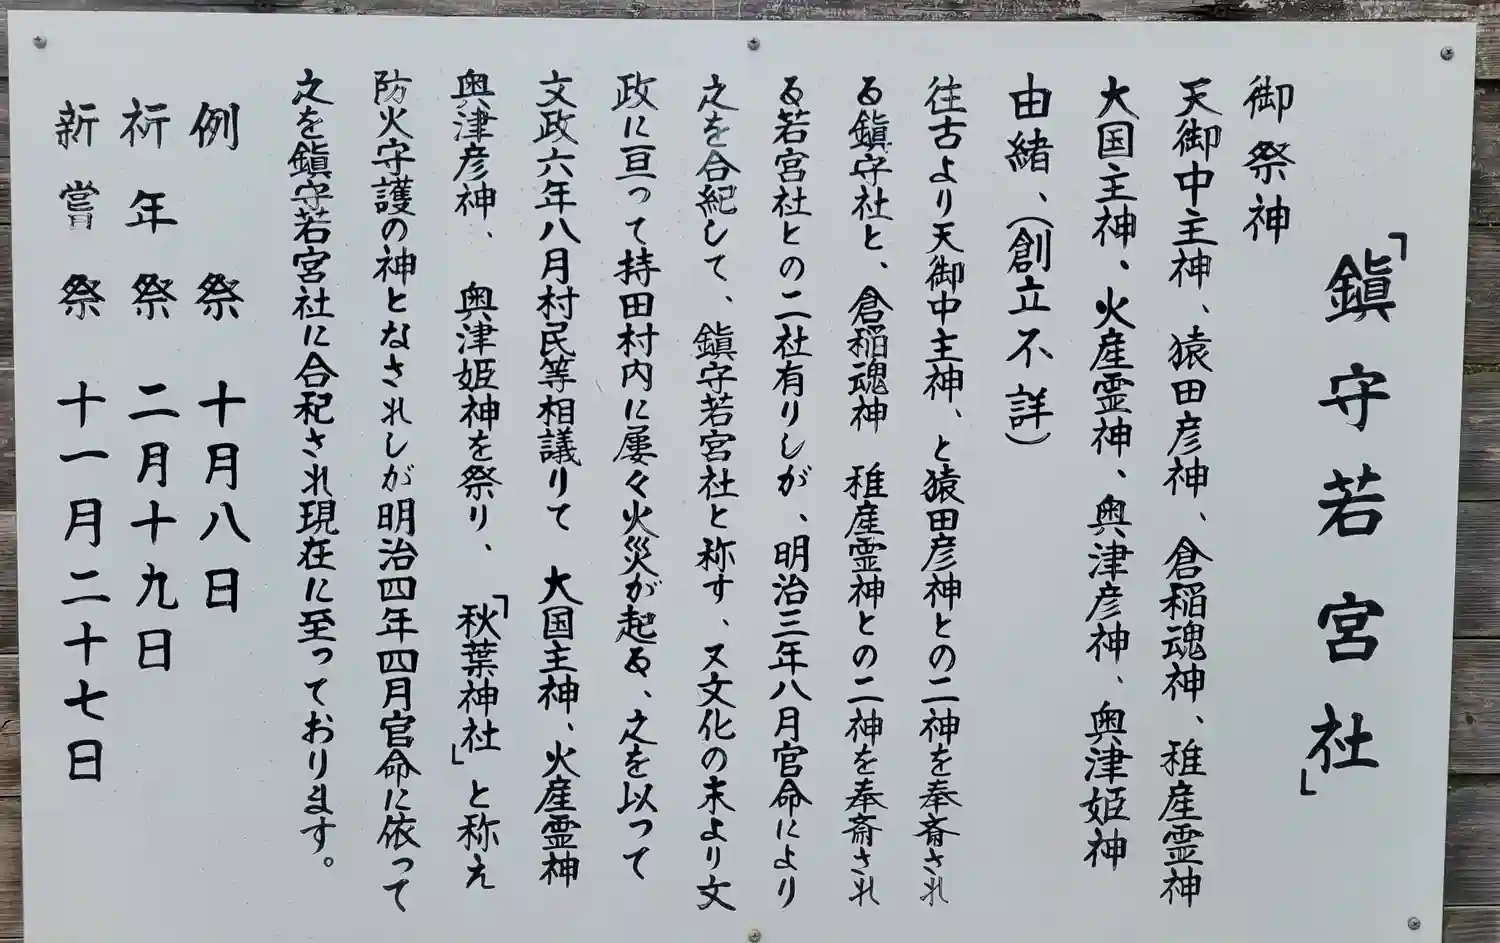 「鎭守若宮社」
御祭神
天御中主神、猿田彦神、倉稲魂神、稚産霊神
大国主神、火産霊神、奥津彦神、奥津姫神
由緒、(創立不詳)
往古より天御中主神、と猿田彦神との二神を奉斎され
る鎭守社と、倉稲魂神 稚産霊神との二神を奉斎され
る若宮社との二社有りしが、明治三年八月官命により
之を合紀して、鎭守若宮社と称す、又文化の末より文
政に亘って持田村内に屡々火災が起る、之を以って
文政六年八月村民等相議りて 大国主神、火産霊神
奥津彦神、奥津姫神を祭り、「秋葉神社」と称え
防火守護の神となされしが明治四年四月官命に依って
之を鎭守若宮社に合祀され現在に至っております。
例祭 十月八日
祈年祭 二月十九日
新嘗祭 十一月二十七日